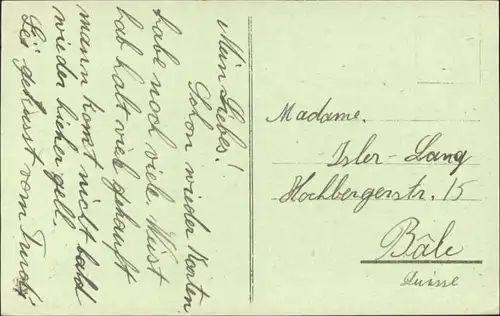 Mein Liebes!
Schon wieder Karten
habe noch viele. Weist
hab halt viele gekauft
mann komt nicht bald
wieder hieher gell.
Sei geküsst vom Trudi
Madame.
Isler-Lang
Hochbergerstr. 15
Bâle
Suisse